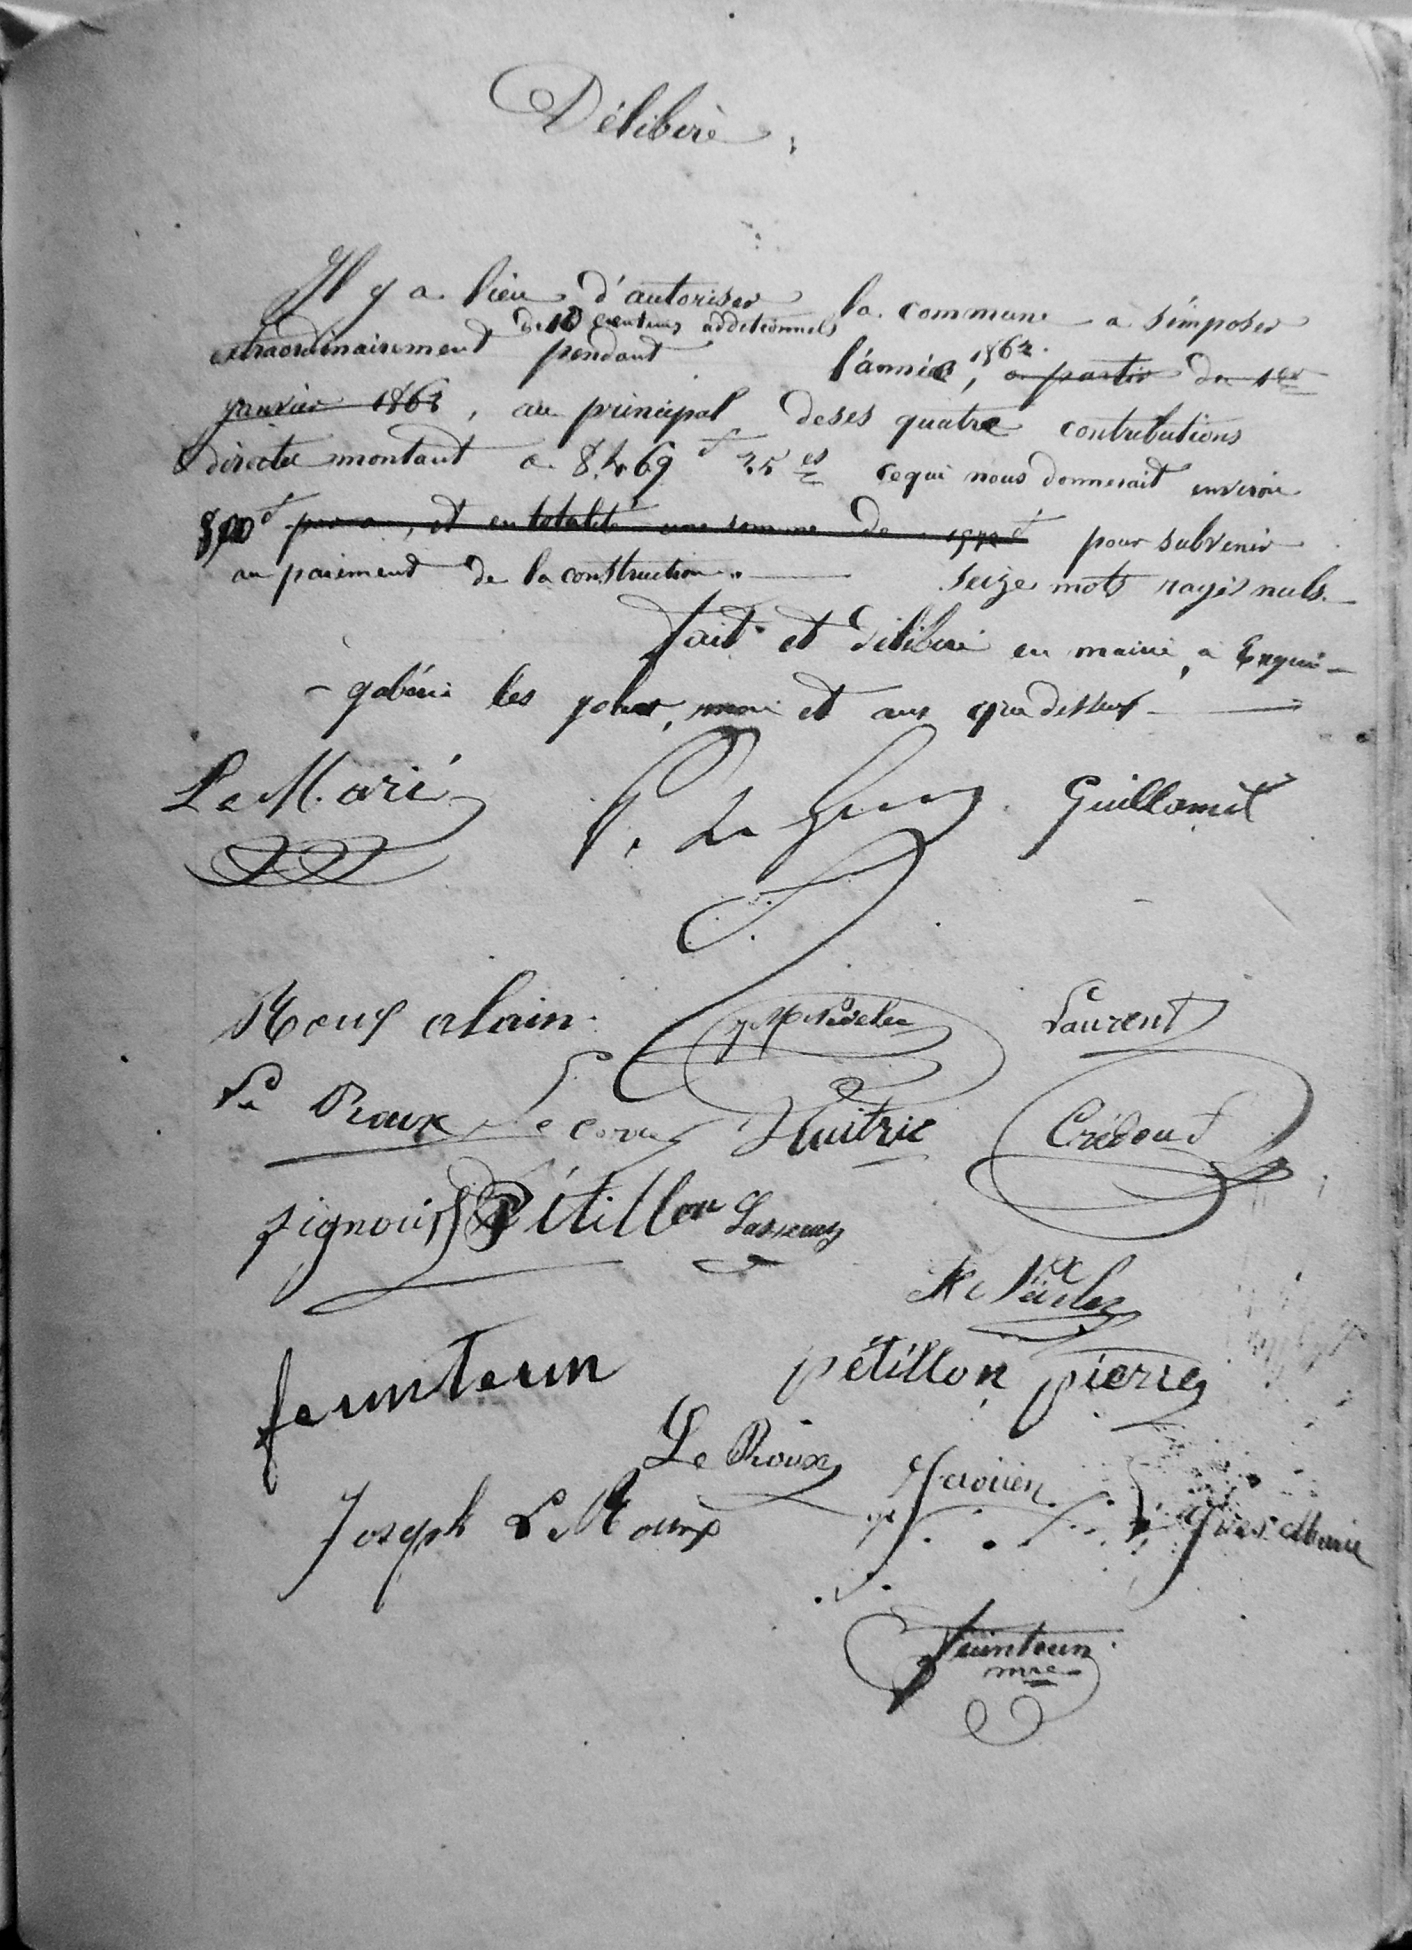 Délibère,
Il y a lieu d'autoriser la commune a s'imposer
de 10 centimes additionnels
extraordinairement pendant l'année, 1862. a partir du 1er
janvier 1862, au principal de ses quatre contributions
directe montant a 8469 f 35 cs ce qui nous donnerait environ
par a, et en totalité une somme de pour subvenir
au paiement de la construction. seize mots rayés nuls.
Fait et délibéré en mairie, a Ergué-
-gabéric les jour, mois et an que dessus
Le Marié P. Le Guillamet
Alain Nédelec Laurent
Le Roux Le Corre Huitric Crédou
Signour Pétillon Lasseur
feunteun pétillon pierre
Le Roux
Joseph Le Roux Yves Marie
feunteun
mre